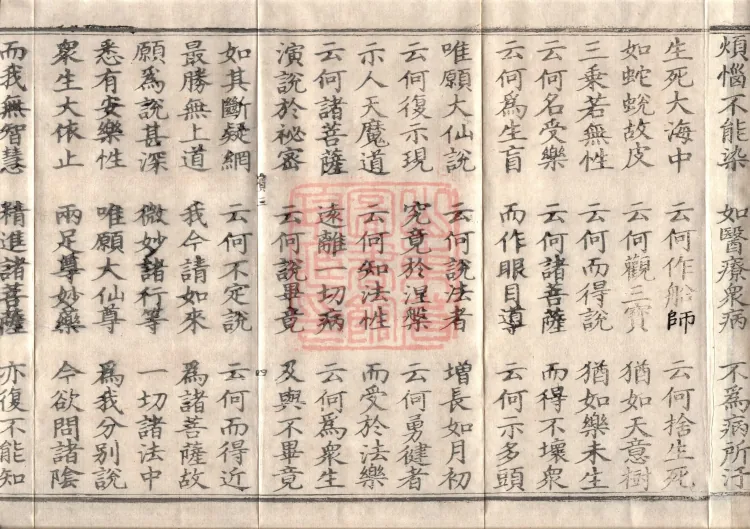 煩惱不能染 如醫療衆病 不為病所汙
生死大海中 云何作舩師 云何捨生死
如蛇蛻故皮 云何觀三寶 猶如天意樹
三乘若無性 云何而得說 猶如樂未生
云何名受樂 云何諸菩薩 而得不壞衆
云何為生盲 而作眼目導 云何示多頭
唯願大仙說 云何說法者 增長如月初
云何復示現 究竟於涅槃 云何勇健者
示人天魔道 云何知法性 而受於法樂
云何諸菩薩 遠離一切病 云何為衆生
演說於祕密 云何說畢竟 及與不畢竟
如其斷疑網 云何不定說 云何而得近
最勝無上道 我今請如來 為諸菩薩故
願為說甚深 微妙諸行等 一切諸法中
悉有安樂性 唯願大仙尊 為我分別說
衆生大依止 兩足尊妙藥 今欲問諸陰
而我無智慧 精進諸菩薩 亦復不能知
四